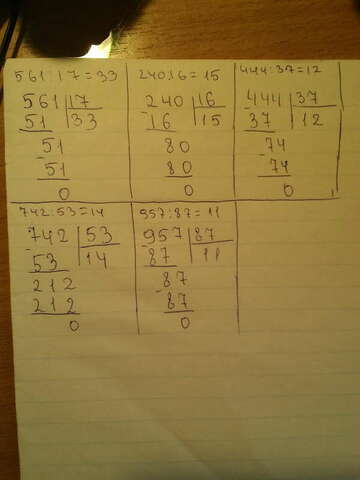 561:17=33
561 17
51 33
51
51
0
240:16=15
240 16
16 15
80
80
0
444:37=12
444 37
37 12
74
74
0
742:53=14
742 53
53 14
212
212
0
957:87=11
957 87
87 11
87
87
0